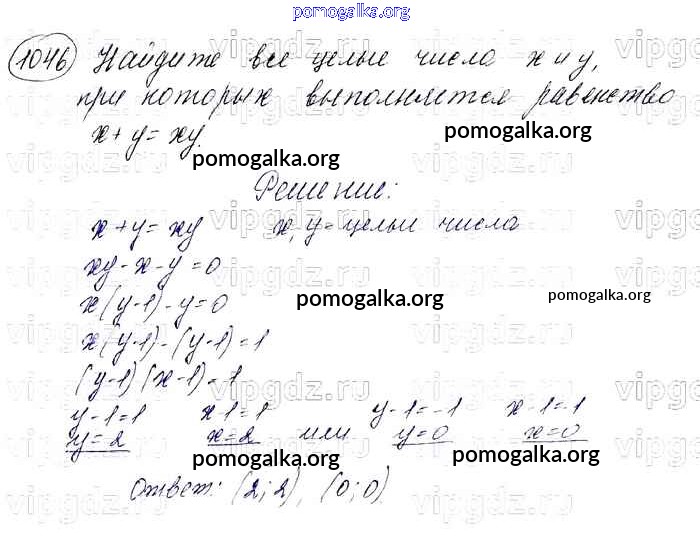 pomogalka.org
1046 Найдите все целые числа x и y,
при которых выполняется равенство
x + y = xy.
pomogalka.org
pomogalka.org
Решение:
x + y = xy x, y - целые числа
xy - x - y = 0
x(y-1) - y = 0
pomogalka.org
pomogalka.org
x(y-1) - (y-1) = 1
(y-1)(x-1) = 1
y-1=1 x-1=1 y-1=-1 x-1=-1
y=2 x=2 или y=0 x=0
pomogalka.org
pomogalka.org
Ответ: (2;2), (0;0)
vipgdz.ru